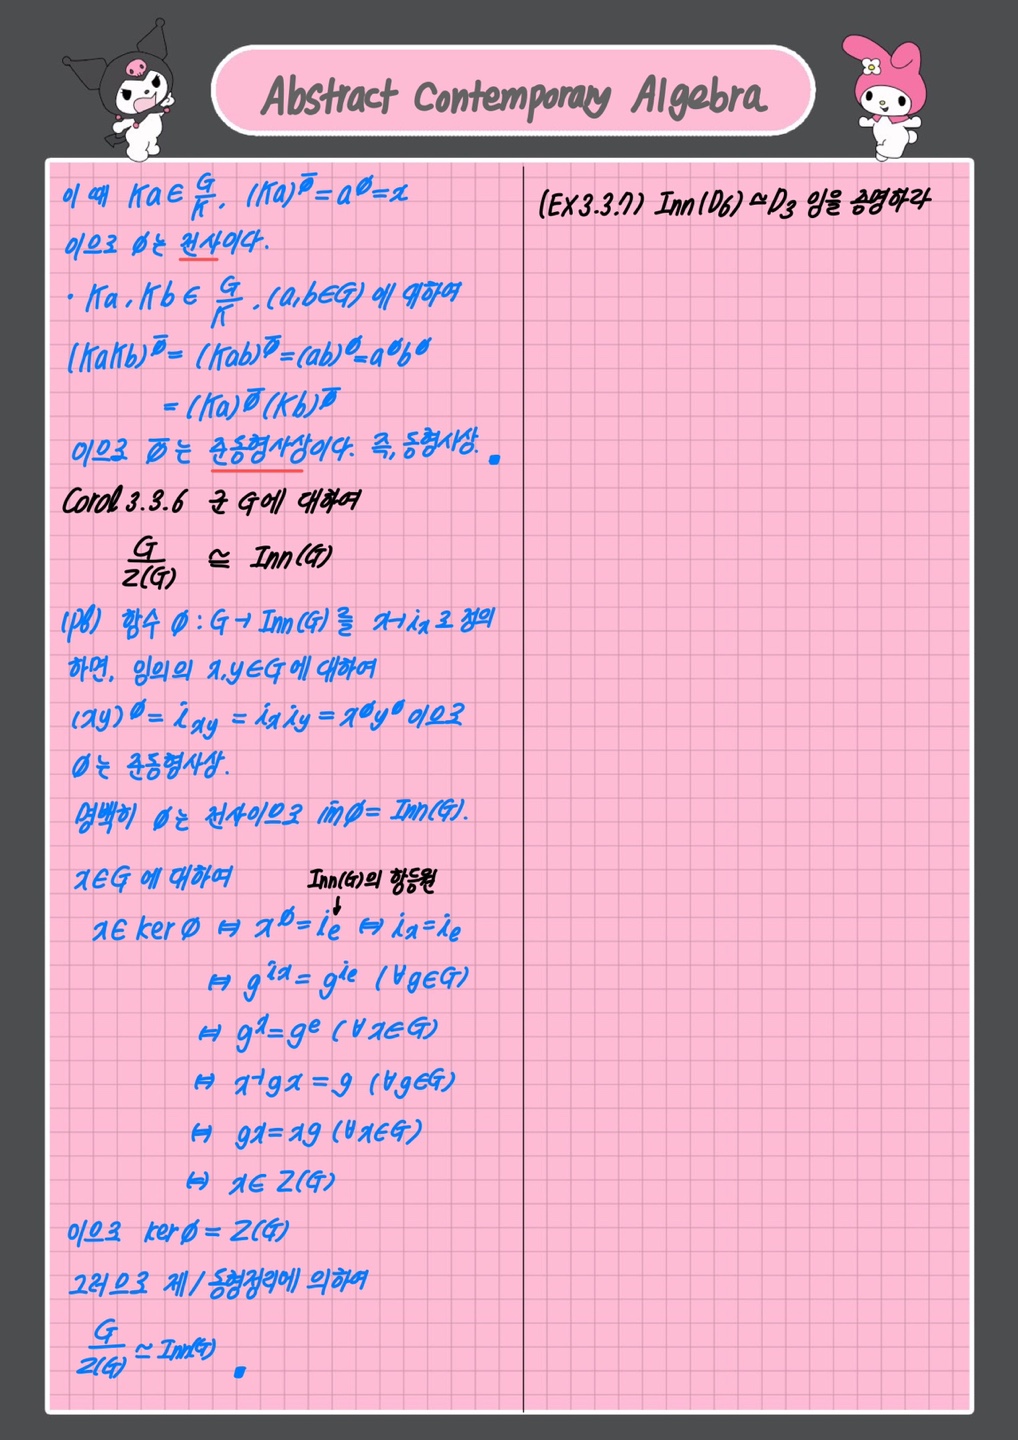 Abstract Contemporary Algebra
이 때 Ka ∈ G/K, (Ka)^φ̅ = a^φ = x
이므로 φ는 전사이다.
· Ka, Kb ∈ G/K, (a,b∈G) 에 대하여
(KaKb)^φ̅ = (Kab)^φ̅ = (ab)^φ = a^φ b^φ
= (Ka)^φ̅ (Kb)^φ̅
이므로 φ̅는 준동형사상이다. 즉, 동형사상. ▪
Corol 3.3.6 군 G에 대하여
G/Z(G) ≅ Inn(G)
(pf) 함수 φ : G → Inn(G) 를 x → i_x 로 정의
하면, 임의의 x,y∈G 에 대하여
(xy)^φ = i_xy = i_x i_y = x^φ y^φ 이므로
φ는 준동형사상.
명백히 φ는 전사이므로 imφ = Inn(G).
x∈G 에 대하여
Inn(G)의 항등원
↓
x∈ ker φ ⇔ x^φ = i_e ⇔ i_x = i_e
⇔ g^i_x = g^i_e (∀g∈G)
⇔ g^x = g^e (∀x∈G)
⇔ x⁻¹gx = g (∀g∈G)
⇔ gx = xg (∀x∈G)
⇔ x∈ Z(G)
이므로 kerφ = Z(G)
그러므로 제1동형정리에 의하여
G/Z(G) ≃ Inn(G) ▪
(EX3.3.7) Inn(D₆) ≃ D₃ 임을 증명하라